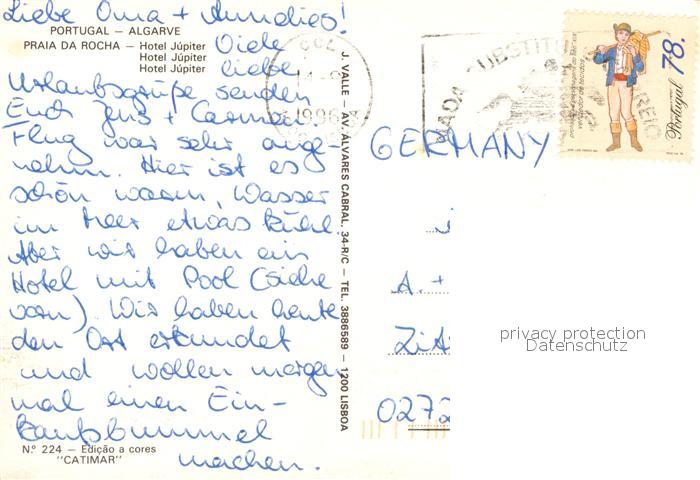 Liebe Oma + Annelies!
PORTUGAL — ALGARVE
PRAIA DA ROCHA — Hotel Júpiter
Hotel Júpiter
Hotel Júpiter
Viele
liebe
Urlaubsgrüße senden
Euch Jens + Carmen.
Flug war sehr ange-
nehm. Hier ist es
schön warm, Wasser
im Meer etwas kühl.
Aber wir haben ein
Hotel mit Pool (siehe
vorn). Wir haben heute
den Ort erkundet
und wollen morgen
mal einen Ein-
kaufsbummel
machen.
N.º 224 — Edição a cores
"CATIMAR"
J. VALLE — AV. ALVARES CABRAL, 34-R/C — TEL. 3886589 — 1200 LISBOA
1996
NADA SUBSTITUI
CORREIO
78.
Portugal
GERMANY
A. +
0272
privacy protection
Datenschutz